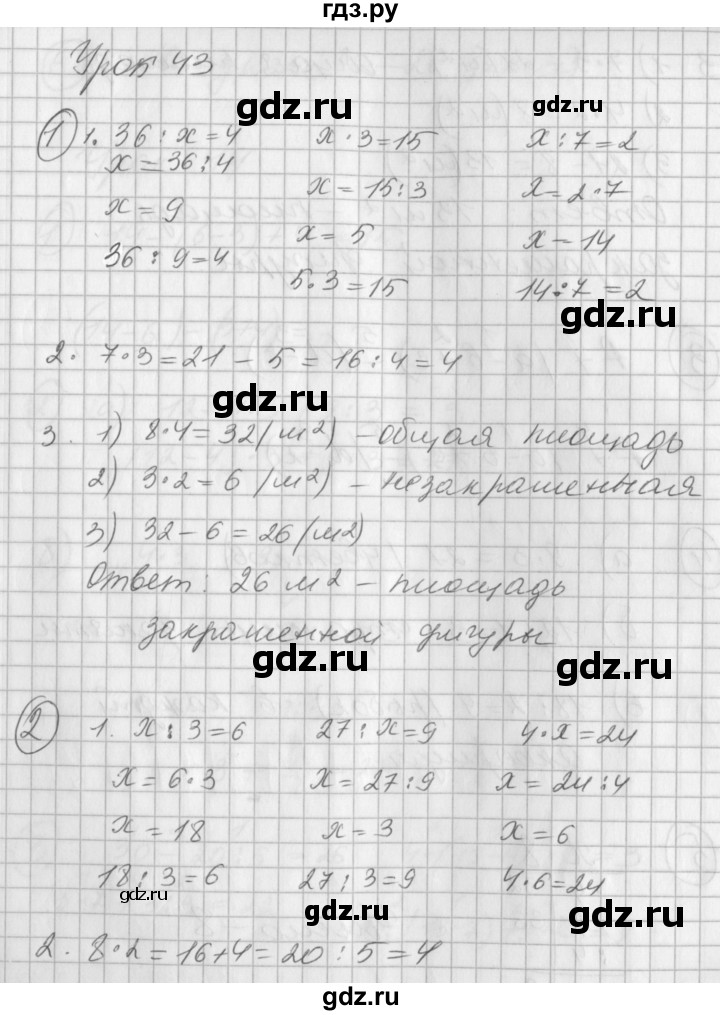 гдз.ру
Урок 43
gdz.ru gdz.ru
1 1. 36 : x = 4 x · 3 = 15 x : 7 = 2
x = 36 : 4 x = 15 : 3 x = 2 · 7
x = 9 x = 5 x – 14
36 : 9 = 4 5 · 3 = 15 14 : 7 = 2
gdz.ru
2. 7 · 3 = 21 – 5 = 16 : 4 = 4
gdz.ru
3. 1) 8 · 4 = 32 (м²) – общая площадь
2) 3 · 2 = 6 (м²) – незакрашенная
3) 32 – 6 = 26 (м²)
Ответ: 26 м² – площадь
закрашенной фигуры
gdz.ru gdz.ru
2 1. x : 3 = 6 27 : x = 9 4 · x = 24
x = 6 · 3 x = 27 : 9 x = 24 : 4
x = 18 x = 3 x = 6
18 : 3 = 6 27 : 3 = 9 4 · 6 = 24
gdz.ru gdz.ru gdz.ru
2. 8 · 2 = 16 + 4 = 20 : 5 = 4
gdz.ru